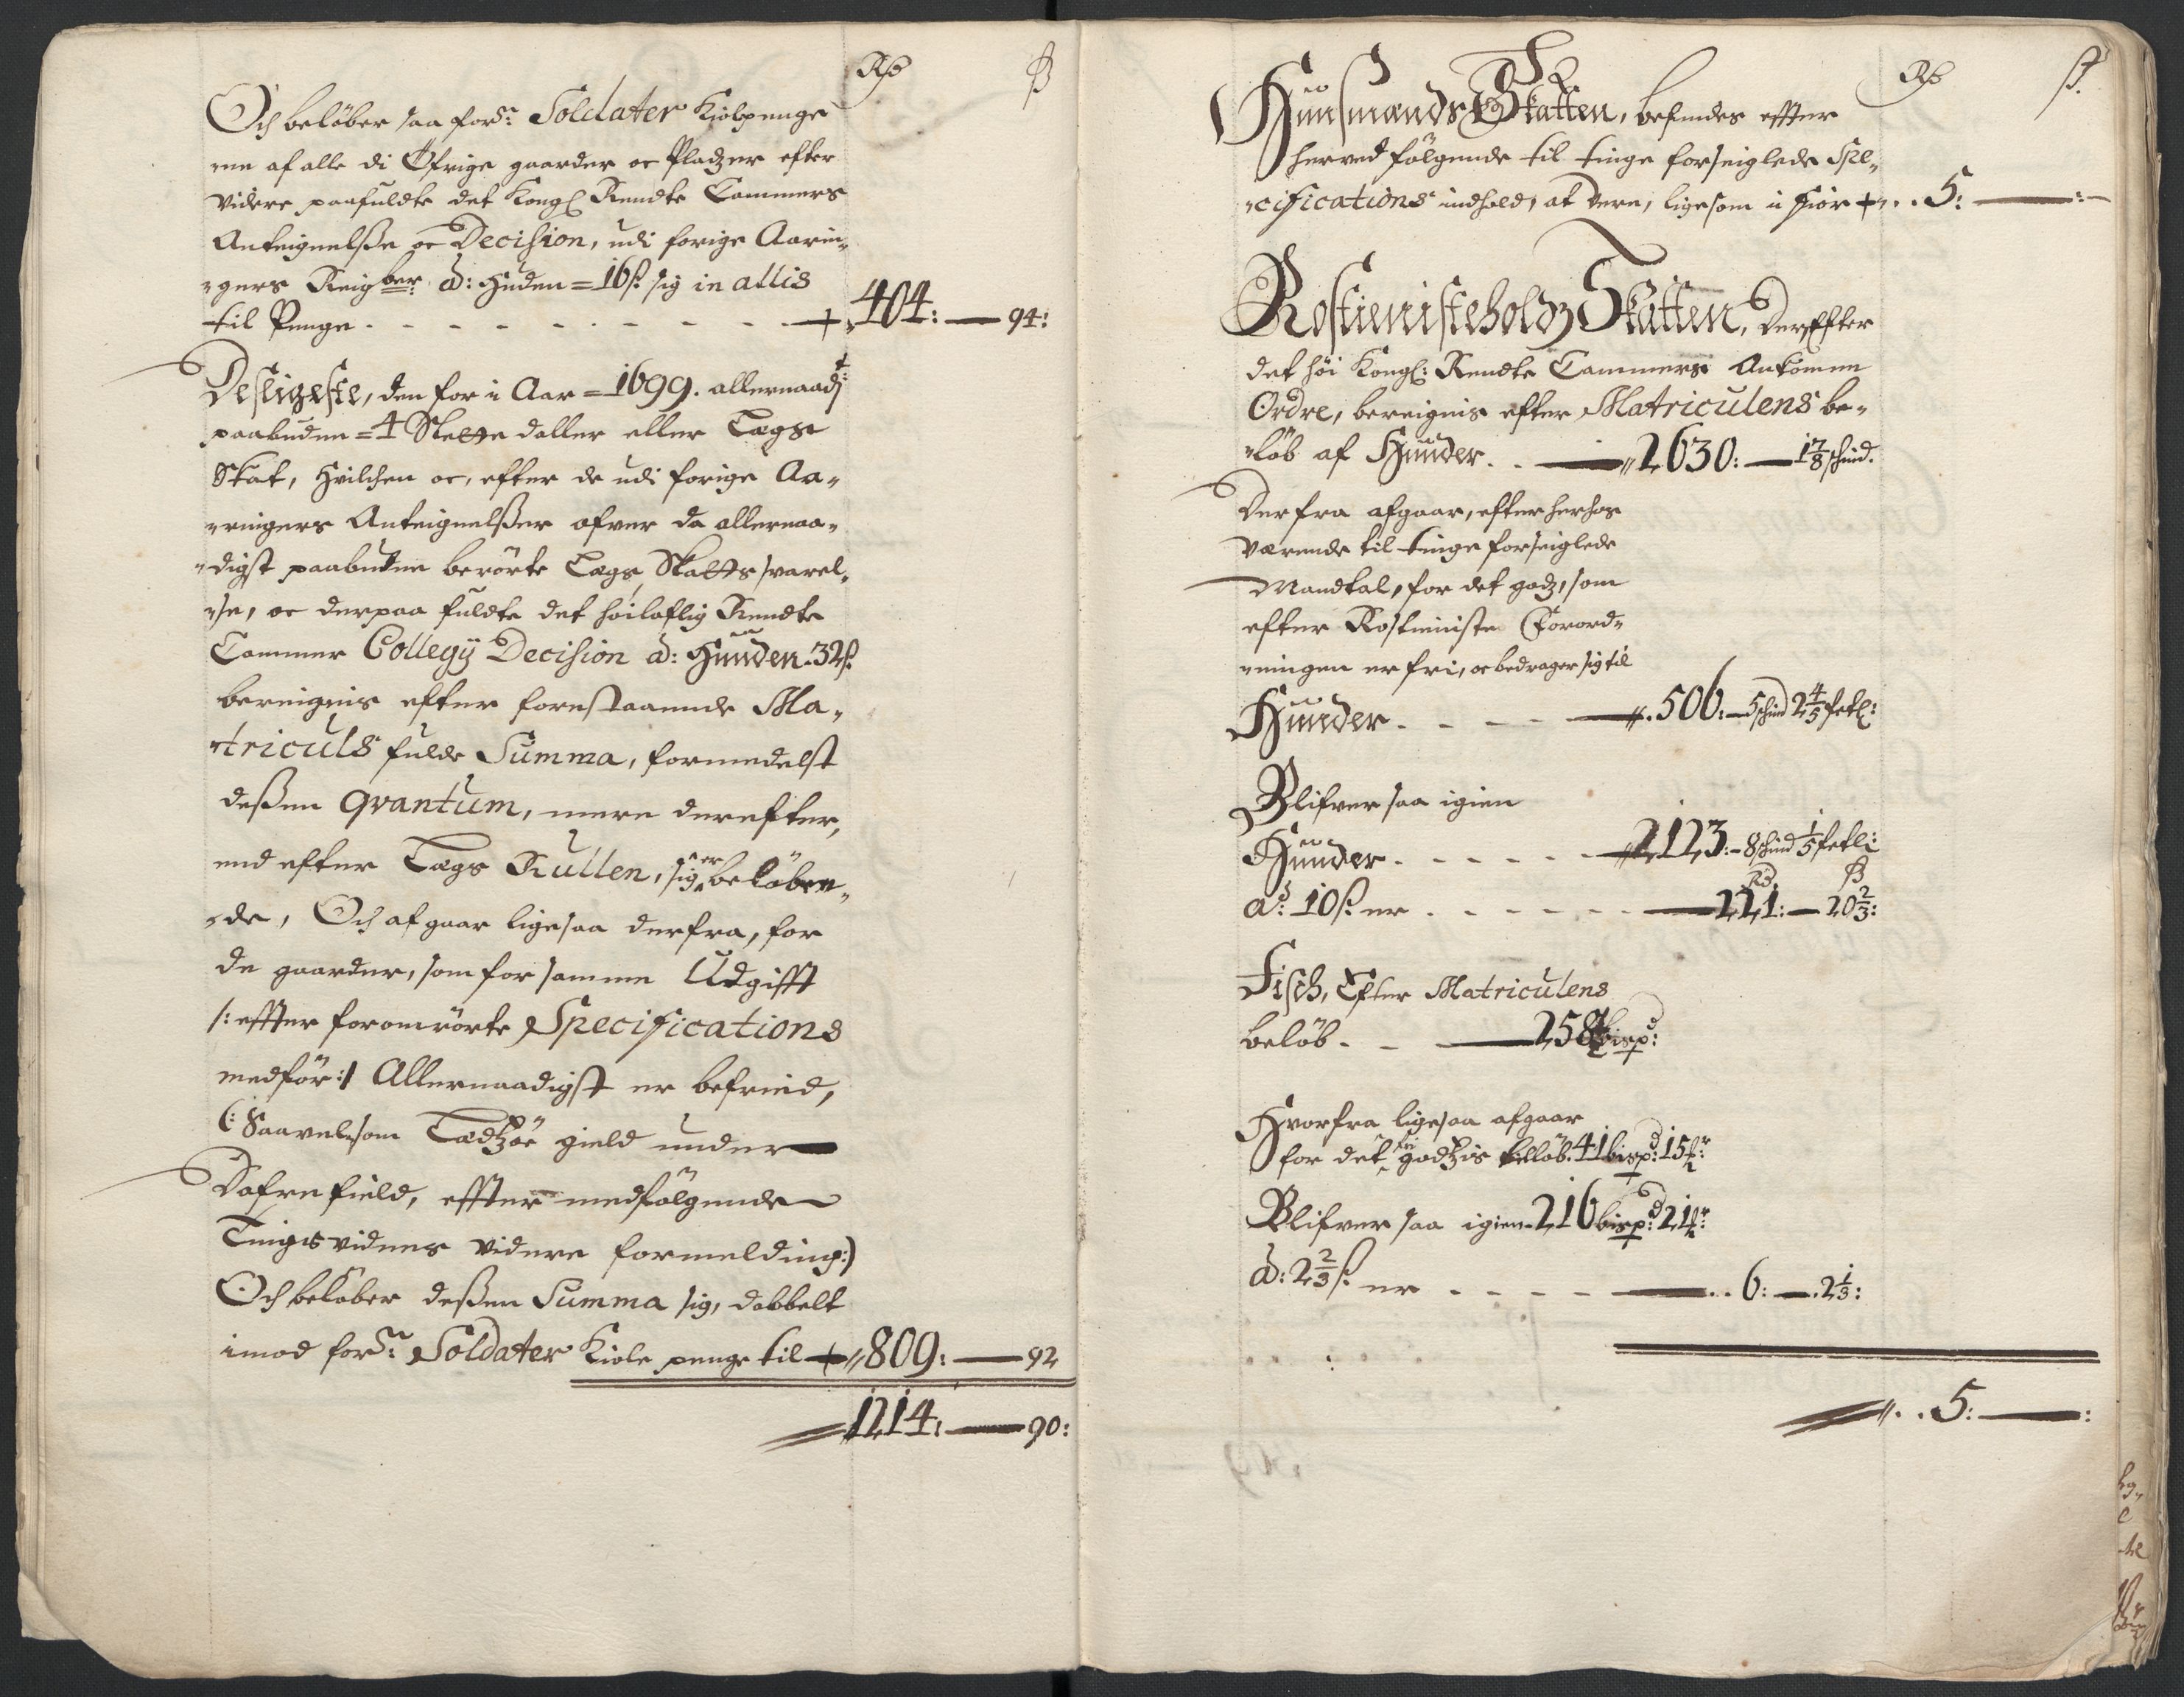 Rdr ß
Och beløber saa forn: Soldater Kiolpenge
ne af alle di Øfrige gaarder oc Pladzer efter
videre paafuldte det Kongl Rendte Cammers
Anteignelsse oc Decision, udi forige Aarin„
„gers Reigber. à: Huden = 16 ß sig in allis
til Penge . - - - - - - - - + „404: — 94:
Desligeste, den for i Aar = 1699. allernaadt:
paabudne = 4 Slette daller eller Lægs
Skat, hvilchen oc, efter de udi forige Aa„
„ringers Anteignelsser ofver da allernaa„
„digst paabudne berørte Lægs Skatts svarel„
„se, oc derpaa fuldte det høiloflig Rendte
Cammer Collegij Decision à: Huuden. 32 ß.
bereignis efter forestaaende Ma„
„triculs fulde Summa, formedelst
dessen qvantum, mere derefter,
end efter Lægs Rullen, sig er beløben„
„de, Och afgaar ligesaa derfra, for
de gaarder, som for samme Udgifft
/: effter foromrørte Specifications
medför :/ Allernaadigst er befried,
(: Saavelsom gield under
Dofrefield, effter medfølgende
Tingsvidnes videre formelding :)
Och beløber dessen Summa sig, dobbelt
imod forn: Soldater Kiole penge til + „809: — 92
1214: — 90:
Rdr ß.
Huusmands Skatten, befindes effter
herved følgende til tinge forseiglede Spe„
„cifications indhold, at vere, ligesom i fiór + „. . 5: — : —
Rostienisteholdz Skatten, der Efter
det høi Kongl: Rendte Cammers Ankomne
Ordre, bereignis efter Matriculens be„
„løb af Huuder. . — „2630: — 1 7/8 schind.
Derfra afgaar, efter herhos
værende til tinge forseiglede
Mandtal, for det godz, som
efter Rostieniste Forord„
„ningen er fri, oc bedrager sig til
Huuder. - - - „. 506: — 5 schind 2 4/5 fetl:
Blifver saa igien
Huuder. - - - - - „2123: — 8 schind 1/5 fetl:
Rd ß
à: 10 ß. er . - - - - - — 221: — 20 2/3:
Fisch, Efter Matriculens
beløb. - — 258 bispd:
Hvorfra ligesaa afgaar
for det fri godzis beløb. 41 bispd: 15 mr:
Blifver saa igien. 216 bispd: 21 mr:
à: 2 2/3 ß. er - - - - — . . 6: — . 2 1/3:
„. . 5: — :